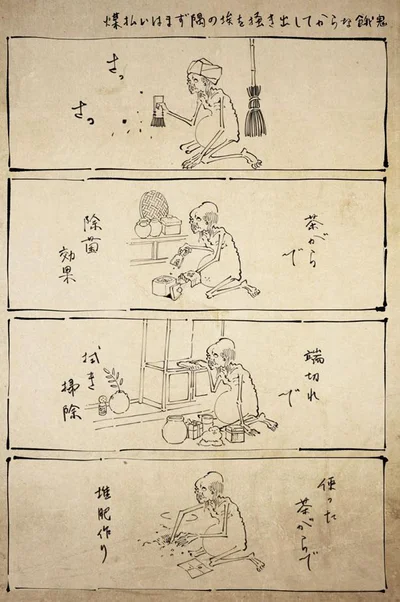 煤払いはまず隅の埃を掻き出してからな餓鬼
さっ
さっ
茶がらで
除菌
効果
端切れで
拭き
掃除
使った
茶がらで
堆肥作り